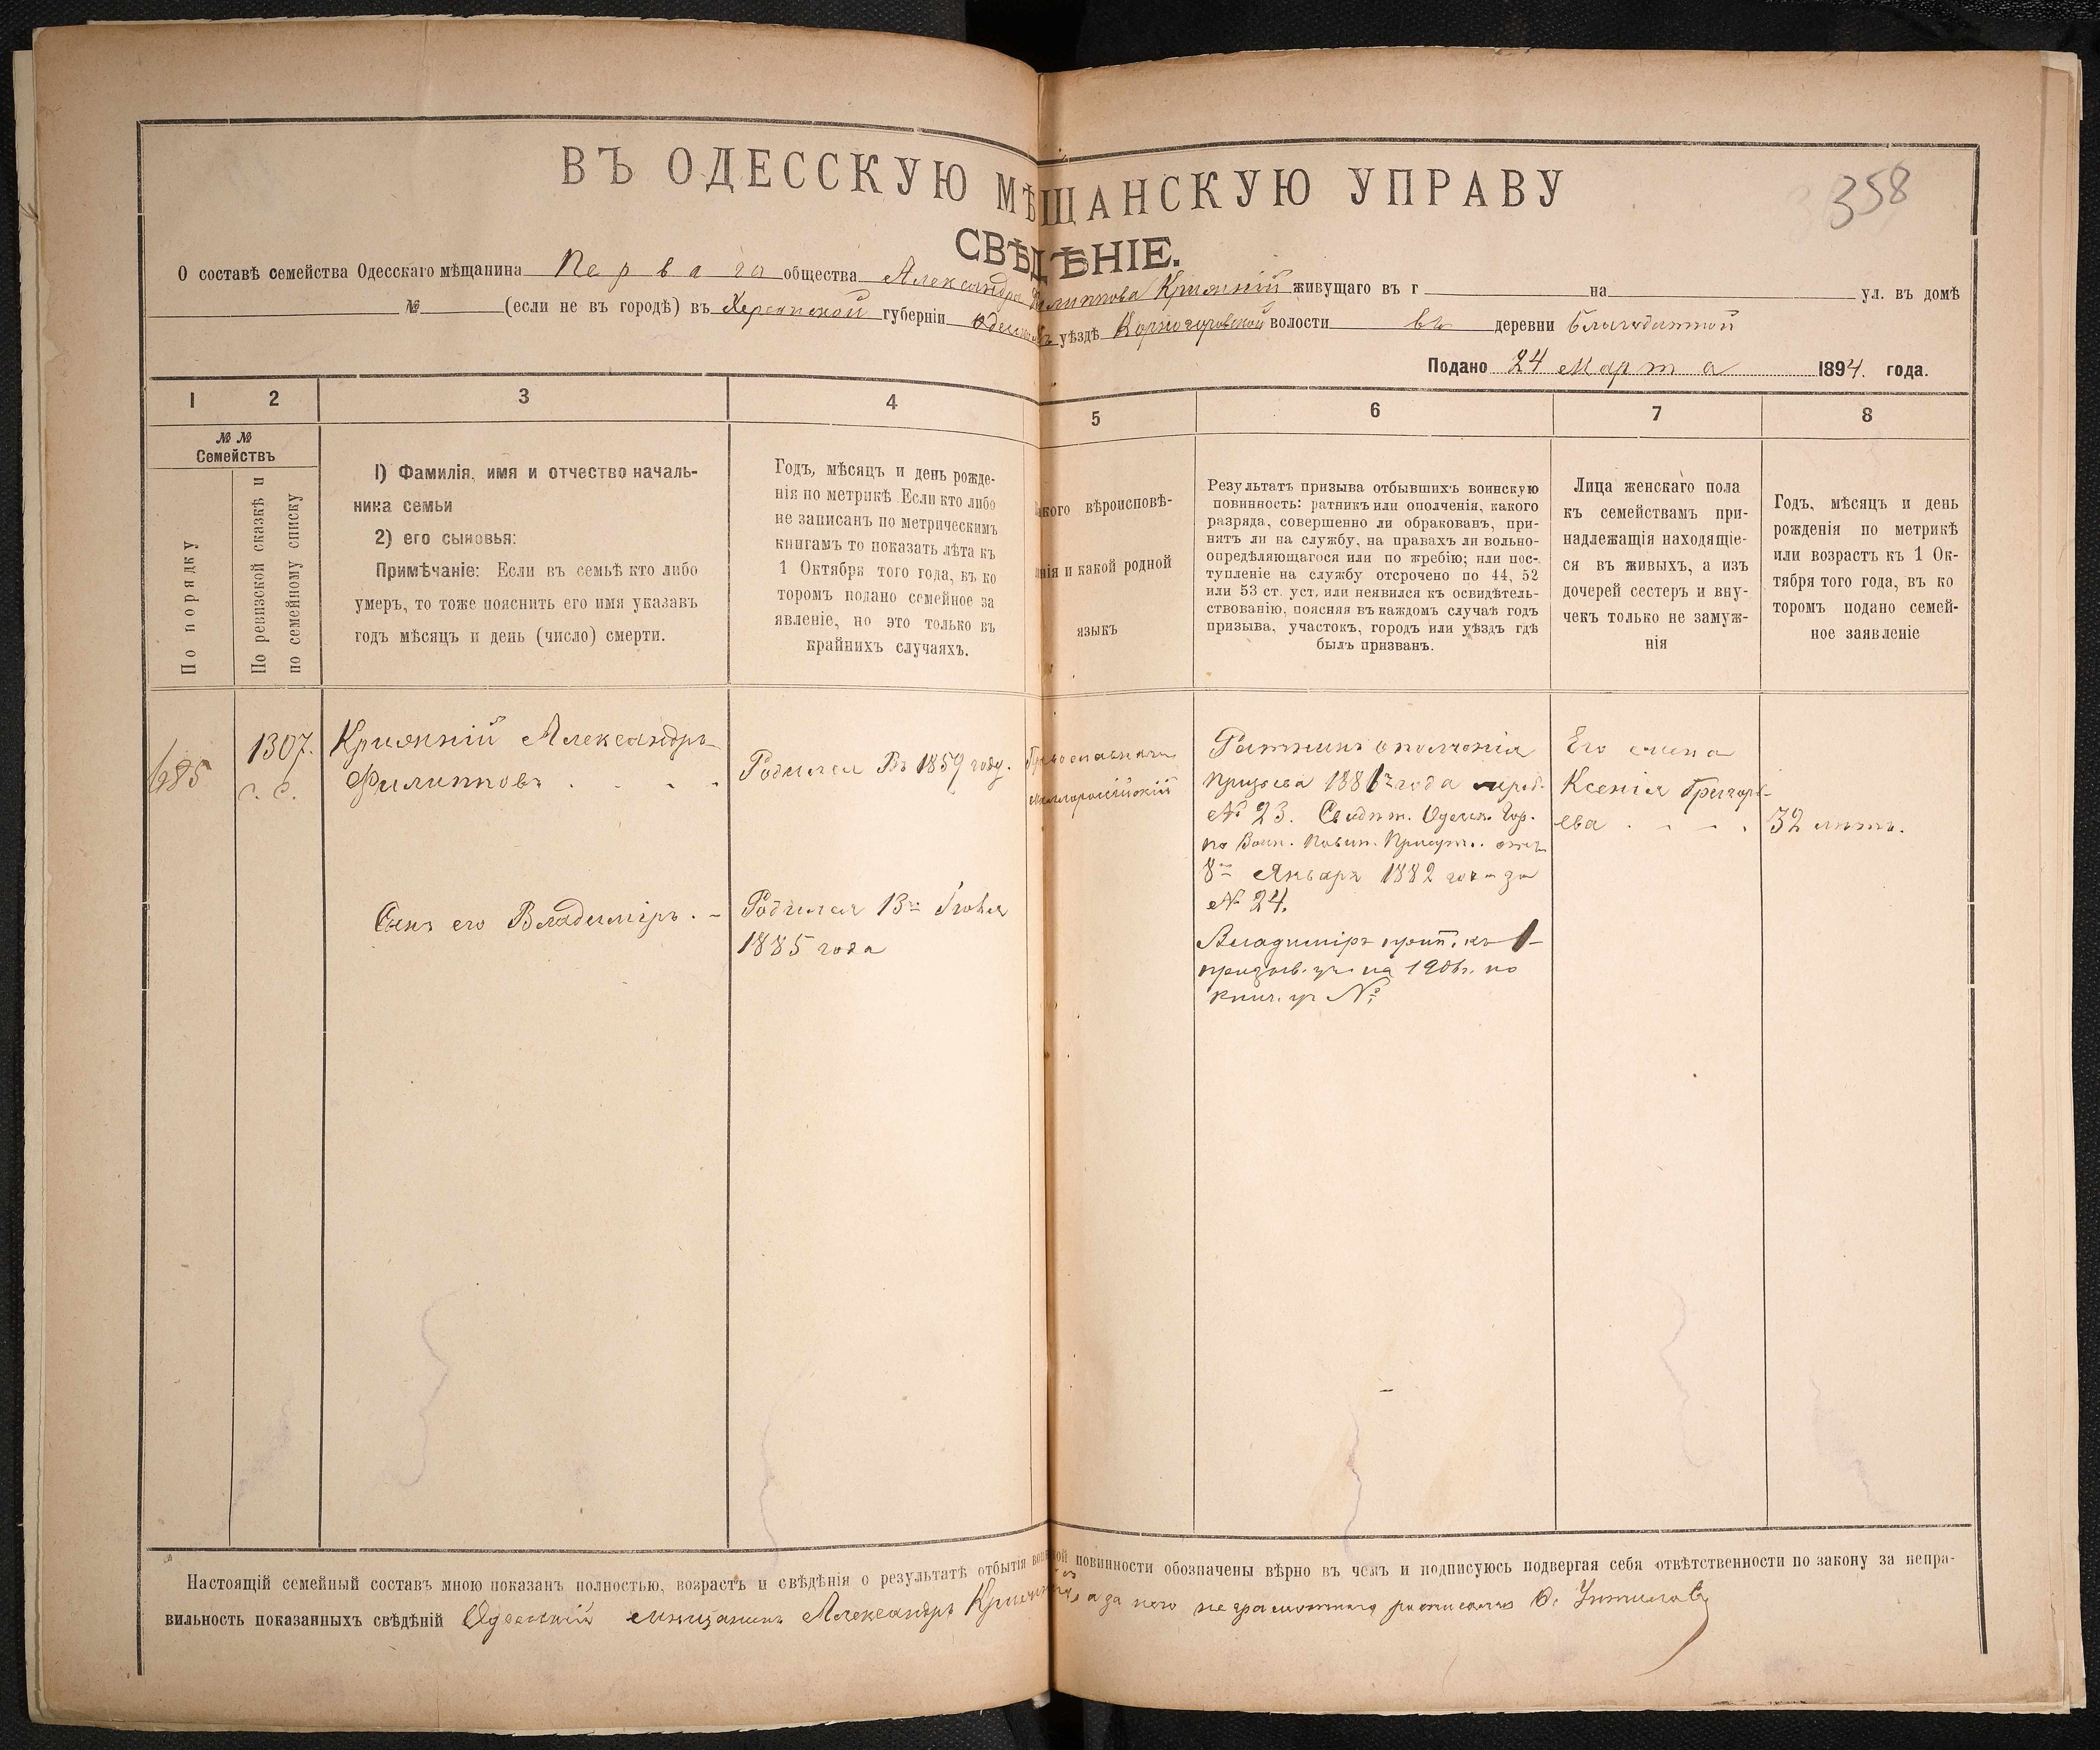 358
ВЪ ОДЕССКУЮ МѢЩАНСКУЮ УПРАВУ
СВѢДѢНІЕ.
О составѣ семейства Одесскаго мѣщанина Перваго общества Александра Филиппова живущаго въ г на ул. въ домѣ
№ (если не въ городѣ) въ Херсонской губерніи уѣздѣ волости въ деревни Благодатной
Подано 24 Марта 1894. года.
1 2 3 4 5 6 7 8
№ №
Семействъ
По порядку
По ревизской сказкѣ и
по семейному списку
1) Фамилія, имя и отчество началь-
ника семьи
2) его сыновья:
Примѣчаніе: Если въ семьѣ кто либо
умеръ, то тоже пояснить его имя указавъ
годъ мѣсяцъ и день (число) смерти.
Годъ, мѣсяцъ и день рожде-
нія по метрикѣ Если кто либо
не записанъ по метрическимъ
книгамъ то показать лѣта къ
1 Октября того года, въ ко
торомъ подано семейное за
явленіе, но это только въ
крайнихъ случаяхъ.
акого вѣроисповѣ-
нія и какой родной
языкъ
Результатъ призыва отбывшихъ воинскую
повинность: ратникъ или ополченія, какого
разряда, совершенно ли обракованъ, при-
нятъ ли на службу, на правахъ ли вольно-
опредѣляющагося или по жребію; или пос-
тупленіе на службу отсрочено по 44, 52
или 53 ст. уст. или неявился къ освидѣтель-
ствованію, поясняя въ каждомъ случаѣ годъ
призыва, участокъ, городъ или уѣздъ гдѣ
былъ призванъ.
Лица женскаго пола
къ семействамъ при-
надлежащія находящіе-
ся въ живыхъ, а изъ
дочерей сестеръ и вну-
чекъ только не замуж-
нія
Годъ, мѣсяцъ и день
рожденія по метрикѣ
или возрастъ къ 1 Ок-
тября того года, въ ко
торомъ подано семей-
ное заявленіе
685
1307.
с. с.
Александръ
Филипповъ
Родился Въ 1859 году.
Православный
малороссійскій
Ратникъ ополченія
Призыва 1881 года жреб.
№ 23. Свидѣт. Одесск. Гор.
по Воин. Повин. Присут. отъ
8го Января 1882 года за
№ 24.
Его жена
Ксенія Григорь-
ева
32 лѣтъ.
Сынъ его Владиміръ. -
Родился 13го Іюля
1885 года
Владиміръ прип. къ 1
призыв. уч. на 1906г. по
№
Настоящій семейный составъ мною показанъ полностью, возрастъ и свѣдѣнія о результатѣ отбытія воинской повинности обозначены вѣрно въ чемъ и подписуюсь подвергая себя отвѣтственности по закону за непра-
вильность показанныхъ свѣдѣній Одесскій мѣщанинъ Александръ а за него неграмотнаго росписался